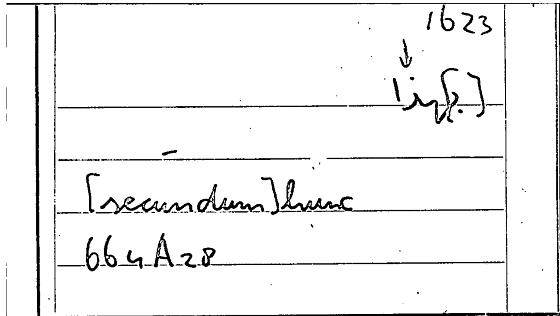 1623
↓
[secundum] hunc
664A28